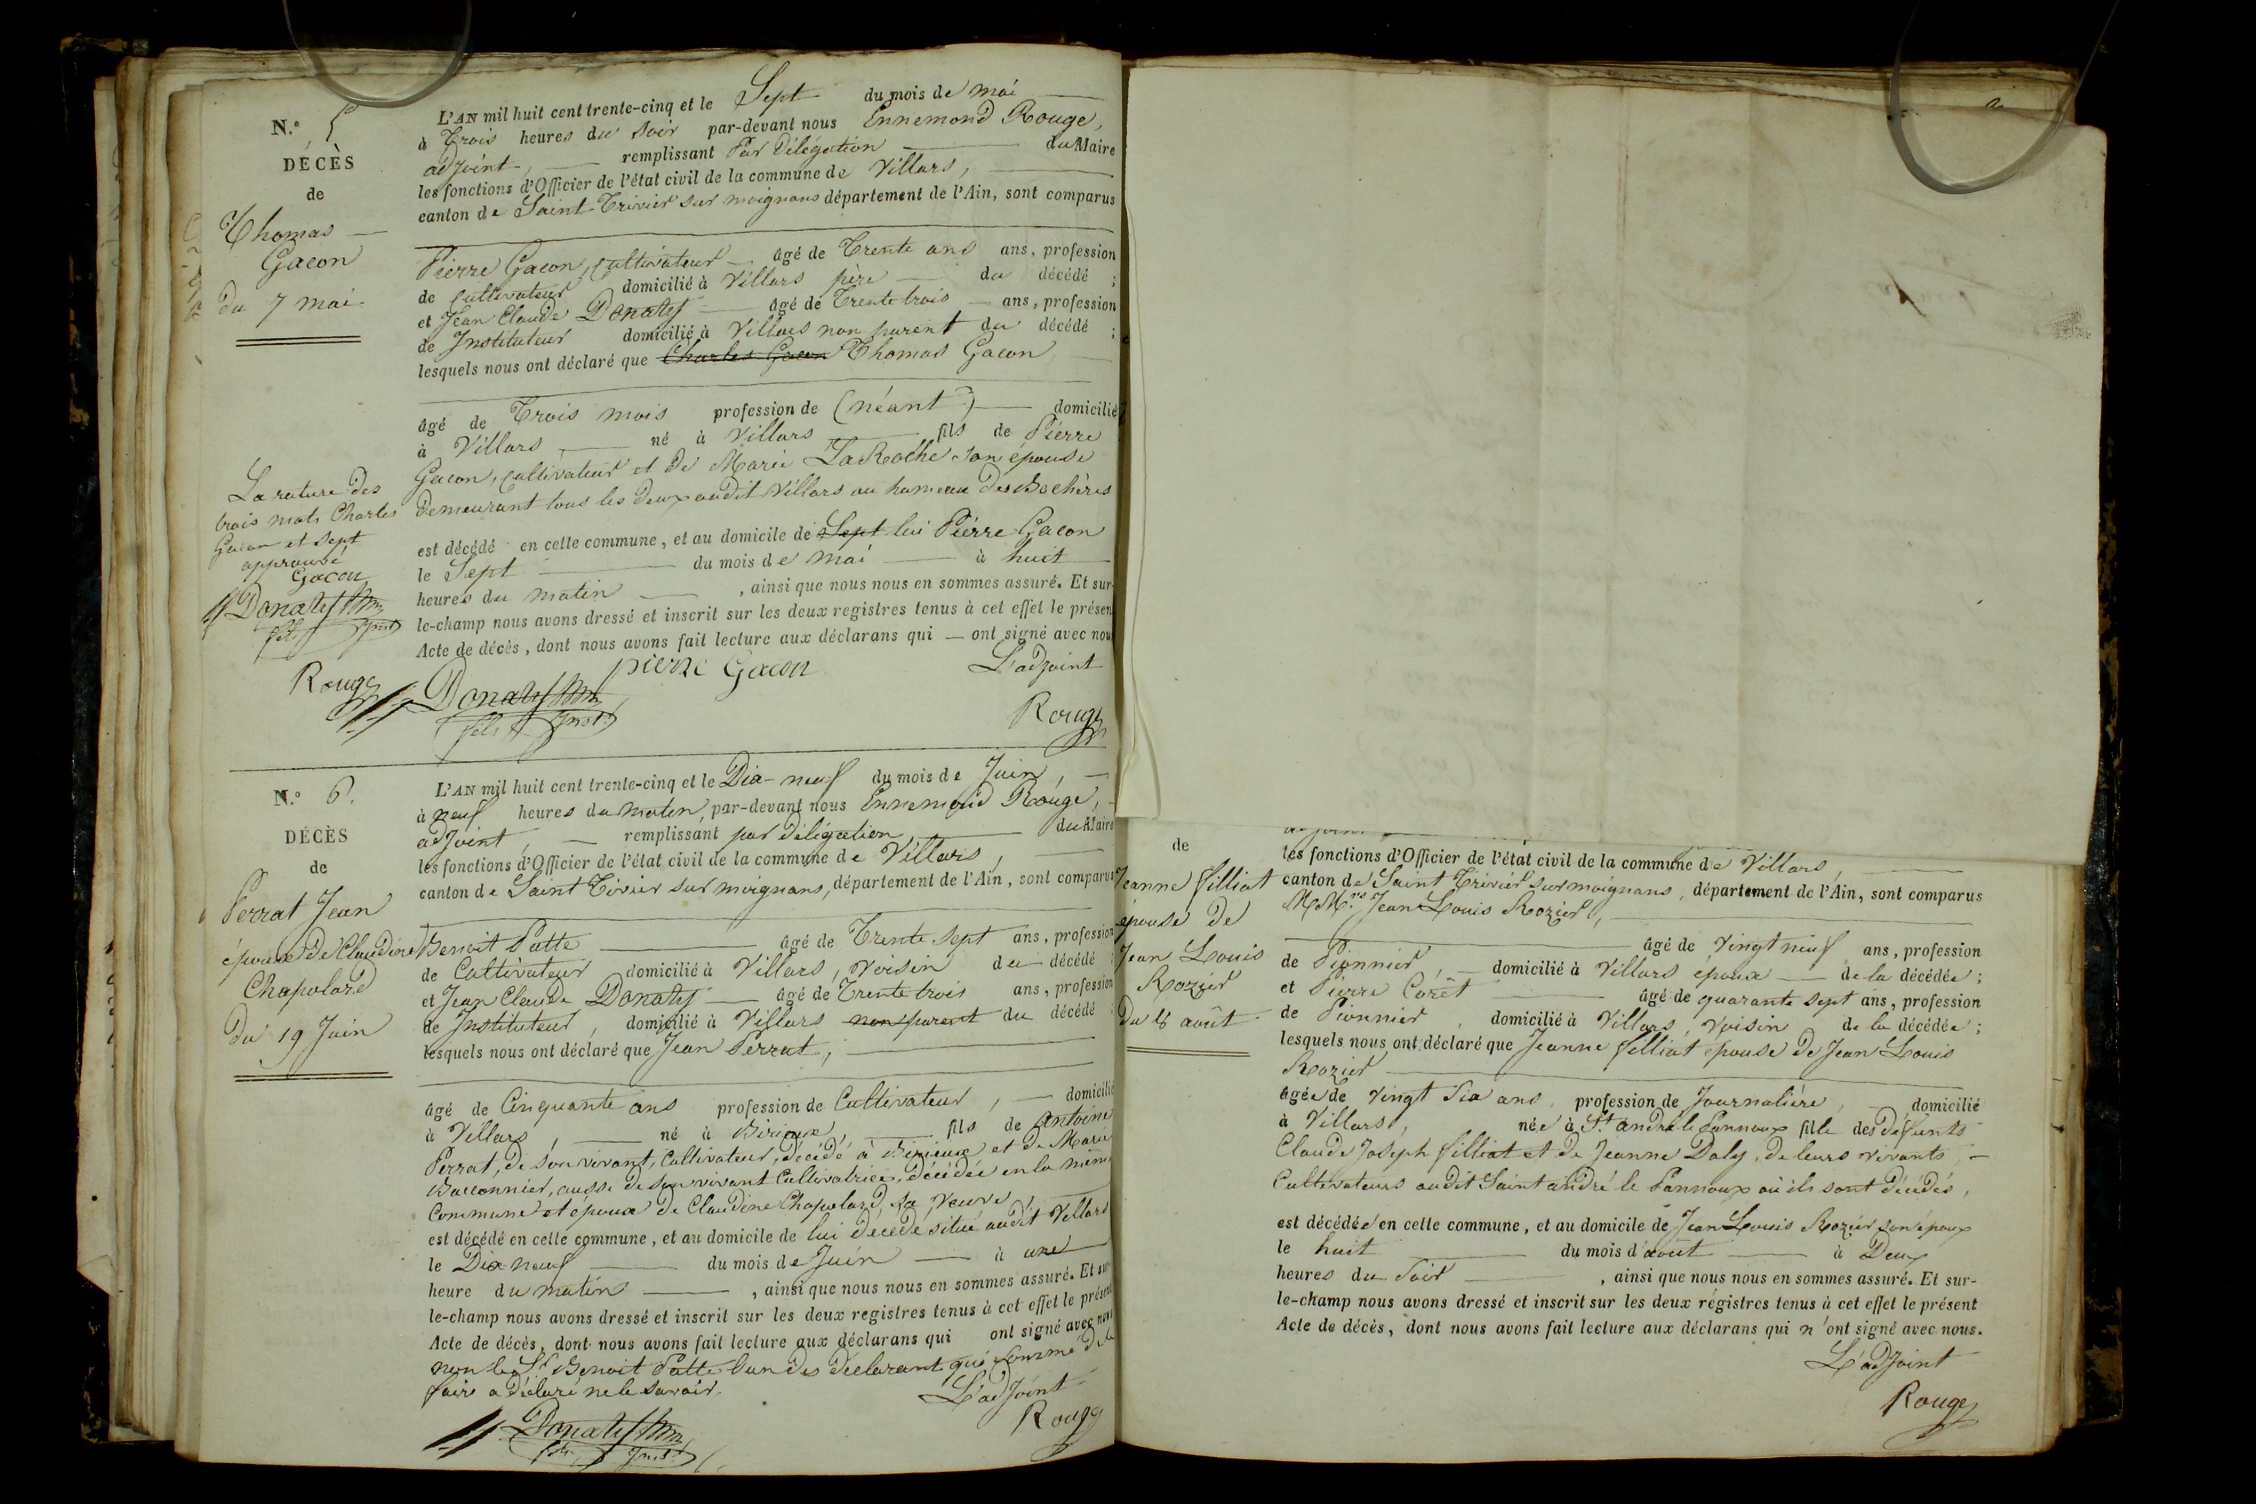 N.° 5
DÉCÈS
de
Thomas
Gacon
du 7 mai
L'AN mil huit cent trente-cinq et le Sept du mois de mai
à Trois heures du soir par-devant nous Ennemond Rouge,
adjoint, remplissant Par Délégation du Maire
les fonctions d'Officier de l'état civil de la commune de Villars,
canton de Saint Trivier sur moignans département de l'Ain, sont comparus
Pierre Gacon, cultivateur âgé de Trente ans ans, profession
de cultivateur domicilié à Villars père du décédé ;
et Jean Claude Donatif âgé de Trente trois ans, profession
de Instituteur domicilié à Villars non parent du décédé ;
lesquels nous ont déclaré que Charles Gacon Thomas Gacon
âgé de Trois mois profession de (néant) domicilié
à Villars né à Villars fils de Pierre
Gacon, cultivateur et de Marie LaRoche son épouse
demeurant tous les deux audit Villars au hameau des
est décédé en celle commune, et au domicile de Sept lui Pierre Gacon
le Sept du mois de mai à huit
heures du matin , ainsi que nous nous en sommes assuré. Et sur-
le-champ nous avons dressé et inscrit sur les deux registres tenus à cet effet le présen
Acte de décès, dont nous avons fait lecture aux déclarans qui ont signé avec nou
La rature des
trois mots Charles
Gacon et Sept
approuvé
Gacon
Donatif
fils Inst
Rouge
pierre Gacon
L'adjoint
Donatif
fils Inst
Rouge
N.° 6.
DÉCÈS
de
Perrat Jean
époux de Claudine
Chapolard
Du 19 Juin
L'AN mil huit cent trente-cinq et le Dix-neuf du mois de Juin,
à neuf heures du matin, par-devant nous Ennemond Rouge,
adjoint, remplissant par Délégation, du Maire
les fonctions d'Officier de l'état civil de la commune de Villars,
canton de Saint Trivier sur moignans, département de l'Ain, sont comparus
Benoit Patte âgé de Trente Sept ans, profession
de Cultivateur domicilié à Villars, Voisin du décédé ;
et Jean Claude Donatif âgé de Trente trois ans, profession
de Instituteur, domicilié à Villars non parent du décédé ;
lesquels nous ont déclaré que Jean Perrat,
âgé de Cinquante ans profession de Cultivateur, domicilié
à Villars, né à Birieux, fils de Antoine
Perrat, de son vivant, Cultivateur, décédé à Birieux et de Marie
aussi de son vivant Cultivatrice, décédée en la même
Commune et époux de Claudine Chapolard, sa veuve
est décédé en celle commune, et au domicile de lui décédé situé audit Villars
le Dix neuf du mois de Juin à une
heure du matin , ainsi que nous nous en sommes assuré. Et sur-
le-champ nous avons dressé et inscrit sur les deux registres tenus à cet effet le présent
Acte de décès, dont nous avons fait lecture aux déclarans qui ont signé avec nous
non le Sr Benoit Patte l'un des déclarant qui sommé de le
faire a déclaré ne le savoir.
L'adjoint
Rouge
Donatif
fils Inst
de
Jeanne filliat
épouse de
Jean Louis
Rozier
Du 8 août
les fonctions d'Officier de l'état civil de la commune de Villars,
canton de Saint Trivier sur moignans, département de l'Ain, sont comparus
MM.rs Jean Louis Rozier,
âgé de Vingt neuf ans, profession
de Pionnier, domicilié à Villars époux de la décédée ;
et Pierre Coret âgé de quarante sept ans, profession
de Pionnier, domicilié à Villars, Voisin de la décédée ;
lesquels nous ont déclaré que Jeanne filliat épouse de Jean Louis
Rozier
âgée de vingt Six ans, profession de Journalière, domicilié
à Villars, née à St andré le Pannoux fille des défunts
Claude Joseph filliat et de Jeanne Daly, de leurs vivants,
Cultivateurs audit Saint andré le Pannoux où ils sont décédés,
est décédée en celle commune, et au domicile de Jean Louis Rozier son époux
le huit du mois d'août à Deux
heures du Soir , ainsi que nous nous en sommes assuré. Et sur-
le-champ nous avons dressé et inscrit sur les deux régistres tenus à cet effet le présent
Acte de décès, dont nous avons fait lecture aux déclarans qui n'ont signé avec nous.
L'adjoint
Rouge